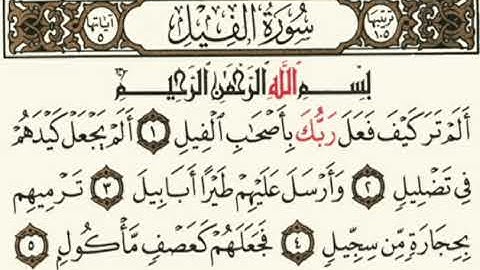 ترتيبها ١٠٥ سُورَةُ الفِيلِ آياتها ٥
بِسْمِ اللَّهِ الرَّحْمَٰنِ الرَّحِيمِ
أَلَمْ تَرَ كَيْفَ فَعَلَ رَبُّكَ بِأَصْحَابِ الْفِيلِ ١ أَلَمْ يَجْعَلْ كَيْدَهُمْ
فِي تَضْلِيلٍ ٢ وَأَرْسَلَ عَلَيْهِمْ طَيْرًا أَبَابِيلَ ٣ تَرْمِيهِم
بِحِجَارَةٍ مِّن سِجِّيلٍ ٤ فَجَعَلَهُمْ كَعَصْفٍ مَّأْكُولٍ ٥